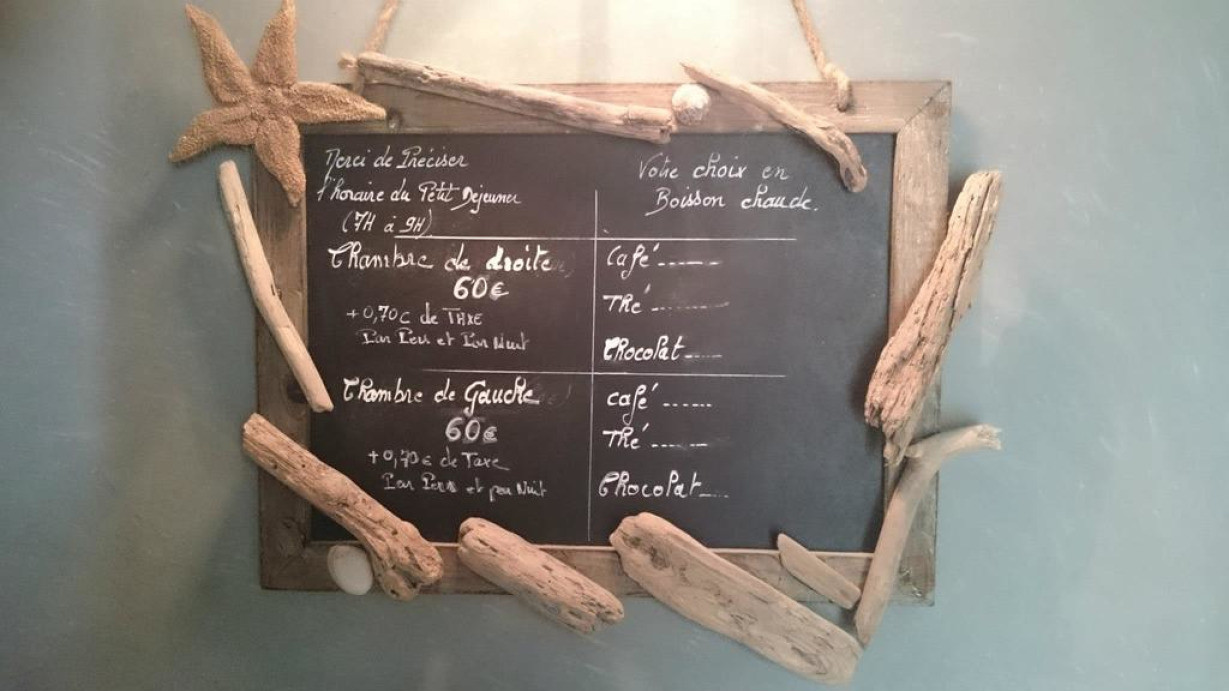 Merci de Préciser
l'horaire du Petit Dejeuner
(7H à 9H)
Votre choix en
Boisson chaude.
Chambre de droite
60€
+0,70€ de TAXE
Par Pers et Par Nuit
Café ------
Thé -------
Chocolat ----
Chambre de Gauche
60€
+0,70€ de Taxe
Par Pers et par Nuit
café ------
Thé ------
Chocolat ----